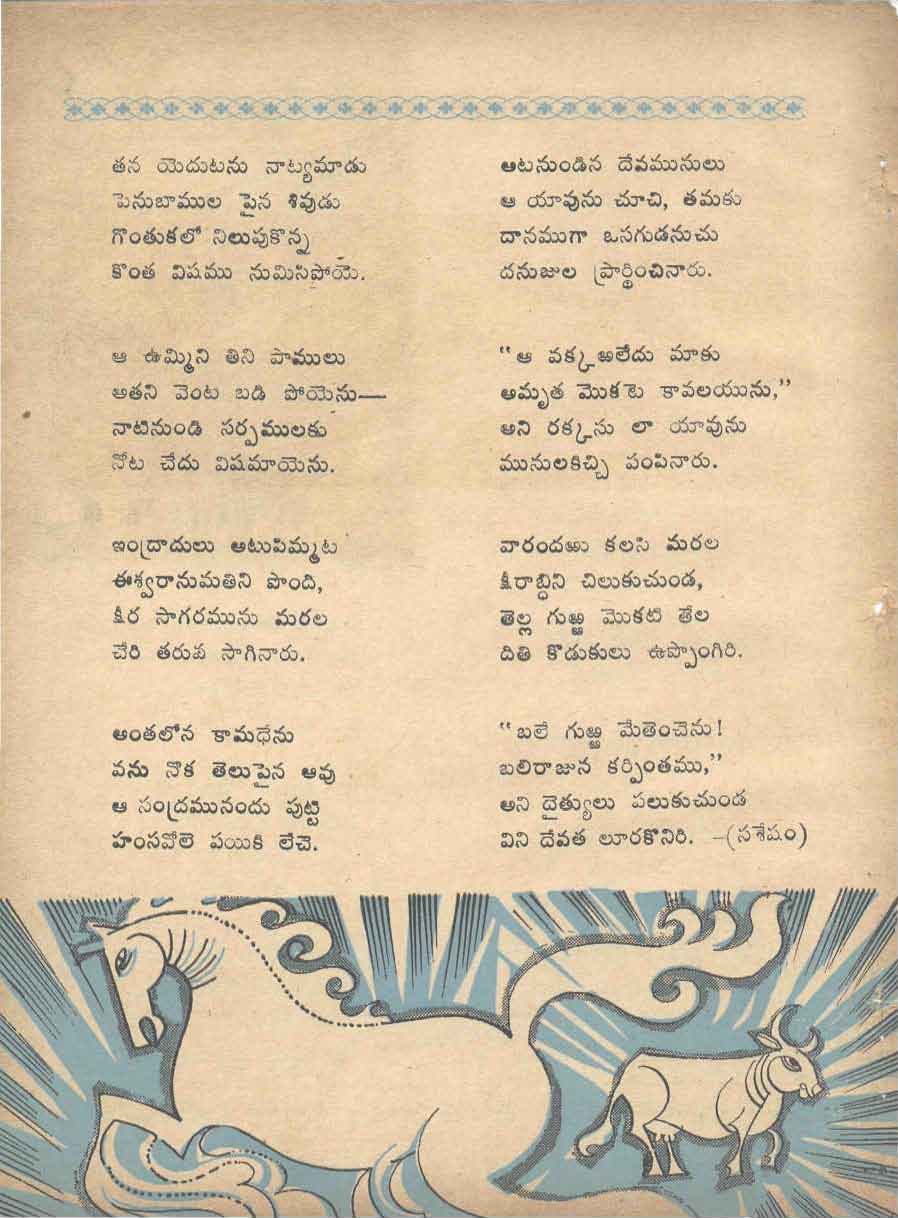 తన యెదుటను నాట్యమాడు
పెనుబాముల పైన శివుడు
గొంతుకలో నిలుపుకొన్న
కొంత విషము నుమిసిపోయె.
ఆ ఉమ్మిని తిని పాములు
అతని వెంట బడి పోయెను—
నాటినుండి సర్పములకు
నోట చేదు విషమాయెను.
ఇంద్రాదులు అటుపిమ్మట
ఈశ్వరానుమతిని పొంది,
క్షీర సాగరమును మరల
చేరి తరువ సాగినారు.
అంతలోన కామధేను
వను నొక తెలుపైన ఆవు
ఆ సంద్రమునందు పుట్టి
హంసవోలె పయికి లేచె.
అటనుండిన దేవమునులు
ఆ యావును చూచి, తమకు
దానముగా ఒసగుడనుచు
దనుజుల ప్రార్థించినారు.
"ఆ వక్కఱలేదు మాకు
అమృత మొకటె కావలయును,"
అని రక్కసు లా యావును
మునులకిచ్చి పంపినారు.
వారందఱు కలసి మరల
క్షీరాబ్ధిని చిలుకుచుండ,
తెల్ల గుఱ్ఱ మొకటి తేల
దితి కొడుకులు ఉప్పొంగిరి.
"బలే గుఱ్ఱ మేతెంచెను!
బలిరాజున కర్పింతము,"
అని దైత్యులు పలుకుచుండ
విని దేవత లూరకొనిరి. —(సశేషం)